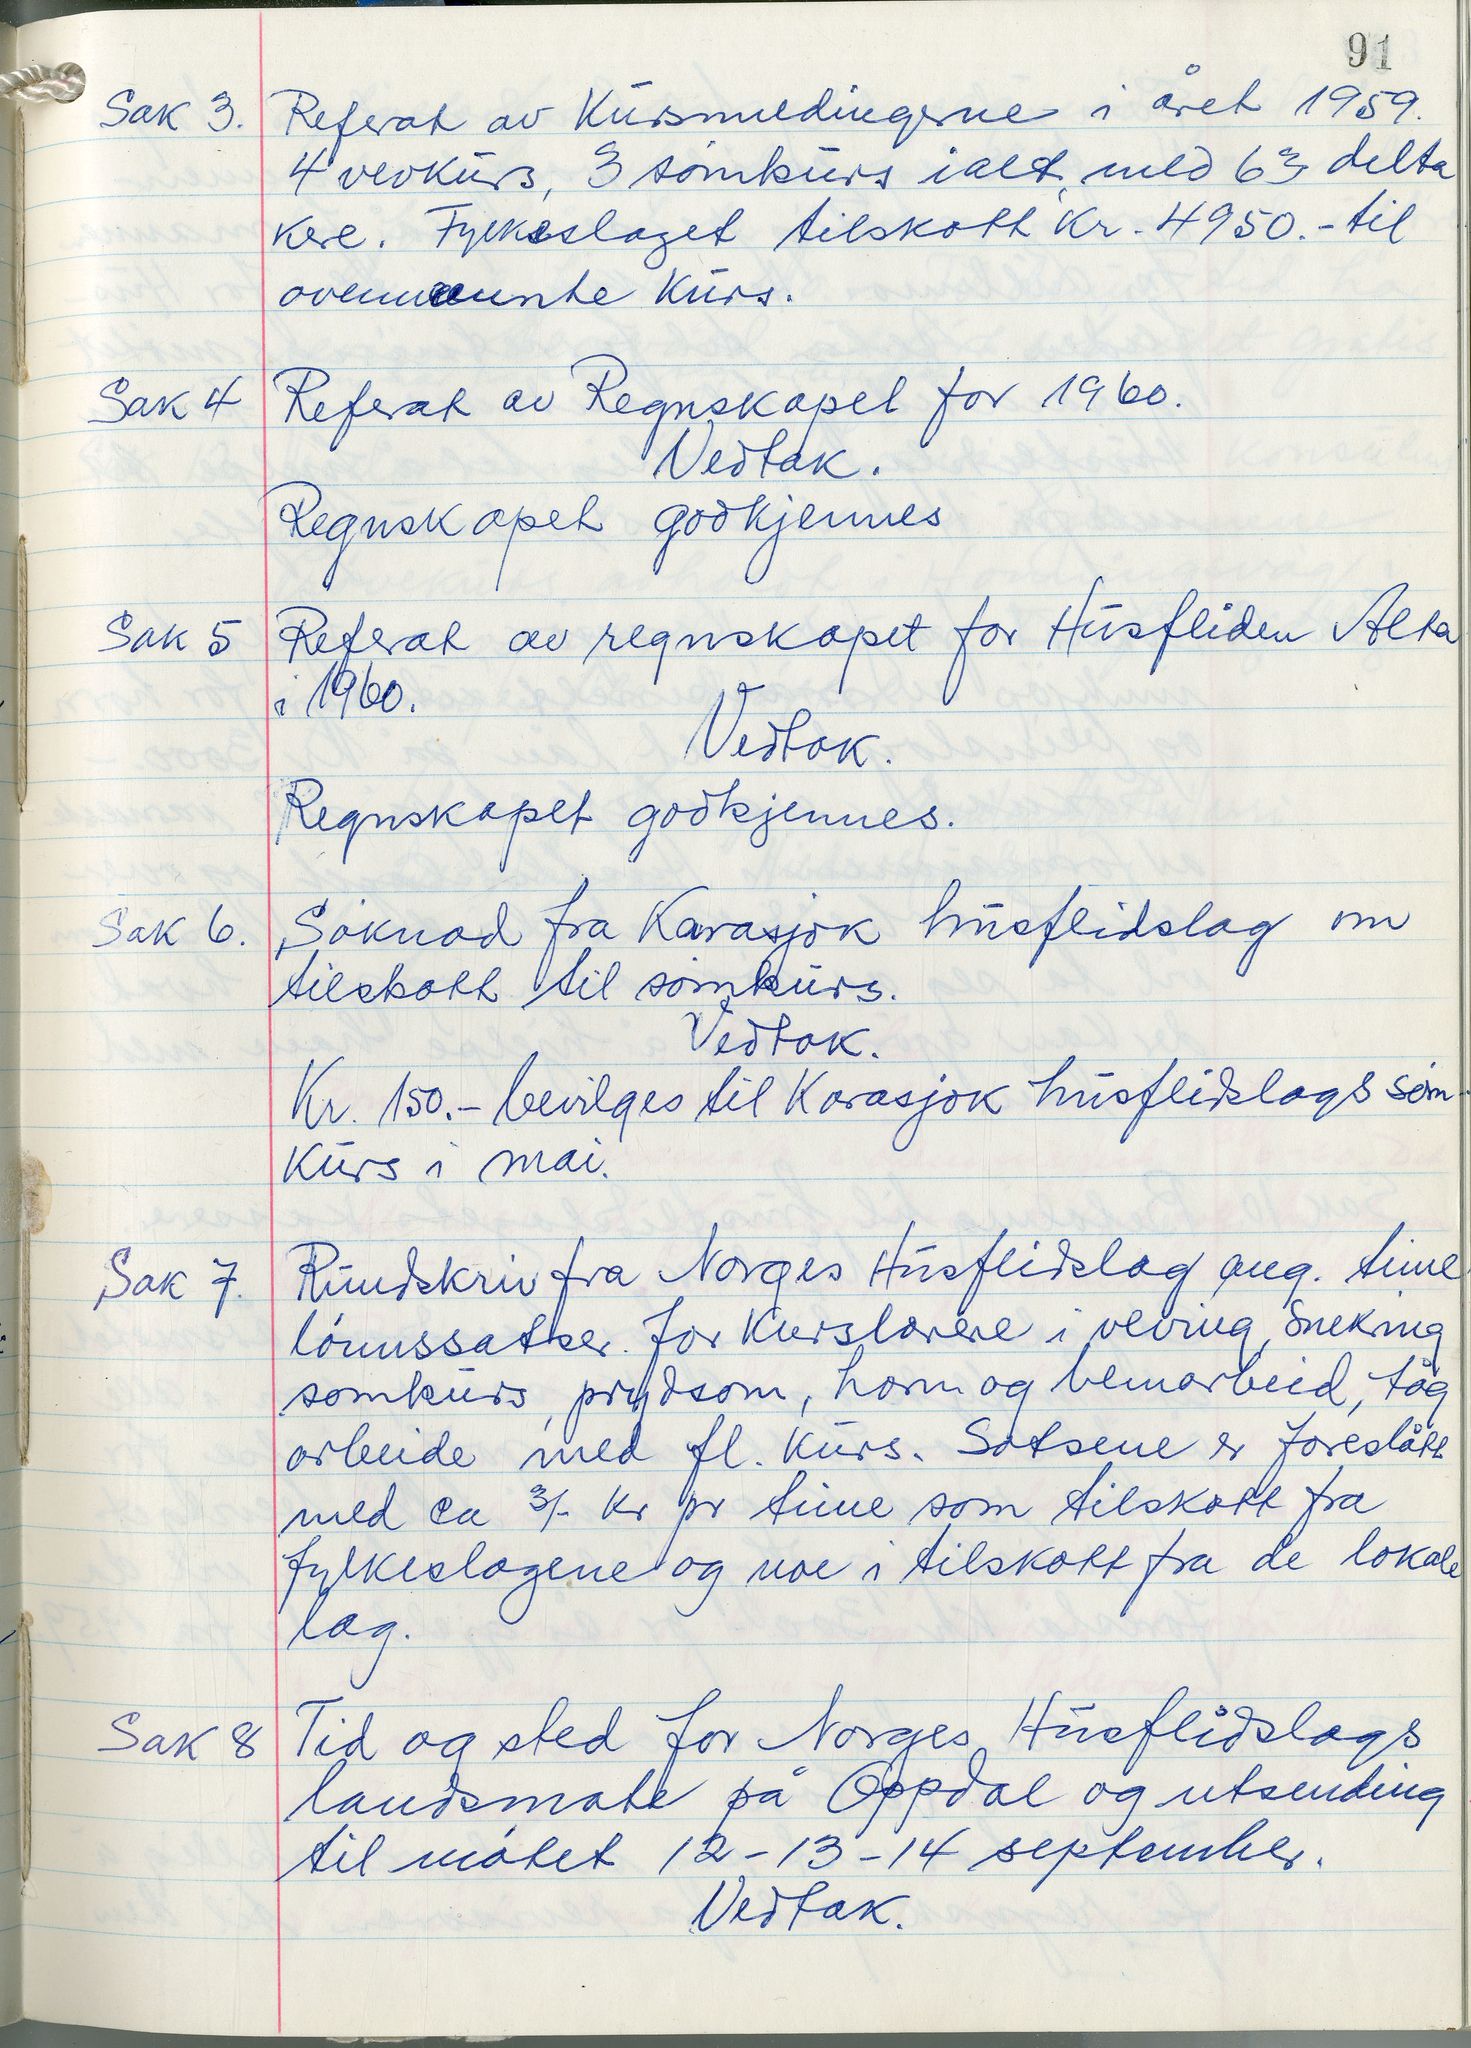 91
Sak 3. Referat av Kursmeldingerne i året 1959.
4 vevkurs, 3 sömkurs ialt, med 63 delta
kere. Fylkeslaget tilskott Kr. 4950.- til
ovennevnte Kurs.
Sak 4 Referat av Regnskapet for 1960.
Vedtak.
Regnskapet godkjennes
Sak 5 Referat av regnskapet for Husfliden Alta
i 1960.
Vedtak.
Regnskapet godkjennes.
Sak 6. Söknad fra Karasjok husflidslag om
tilskott til sömkurs.
Vedtak.
Kr. 150.- bevilges til Karasjok husflidslags söm-
Kurs i mai.
Sak 7. Rundskriv fra Norges Husflidslag ang. time
lönnssatser for Kurslærere i veving, Snekring
somkurs, prydsom, horn og benarbeid, tåg
arbeide med fl. Kurs. Satsene er foreslått
med ca 3/- Kr pr time som tilskott fra
fylkeslagene og noe i tilskott fra de lokale
lag.
Sak 8 Tid og sted for Norges Husflidslags
landsmöte på Oppdal og utsending
til mötet 12-13-14 september.
Vedtak.